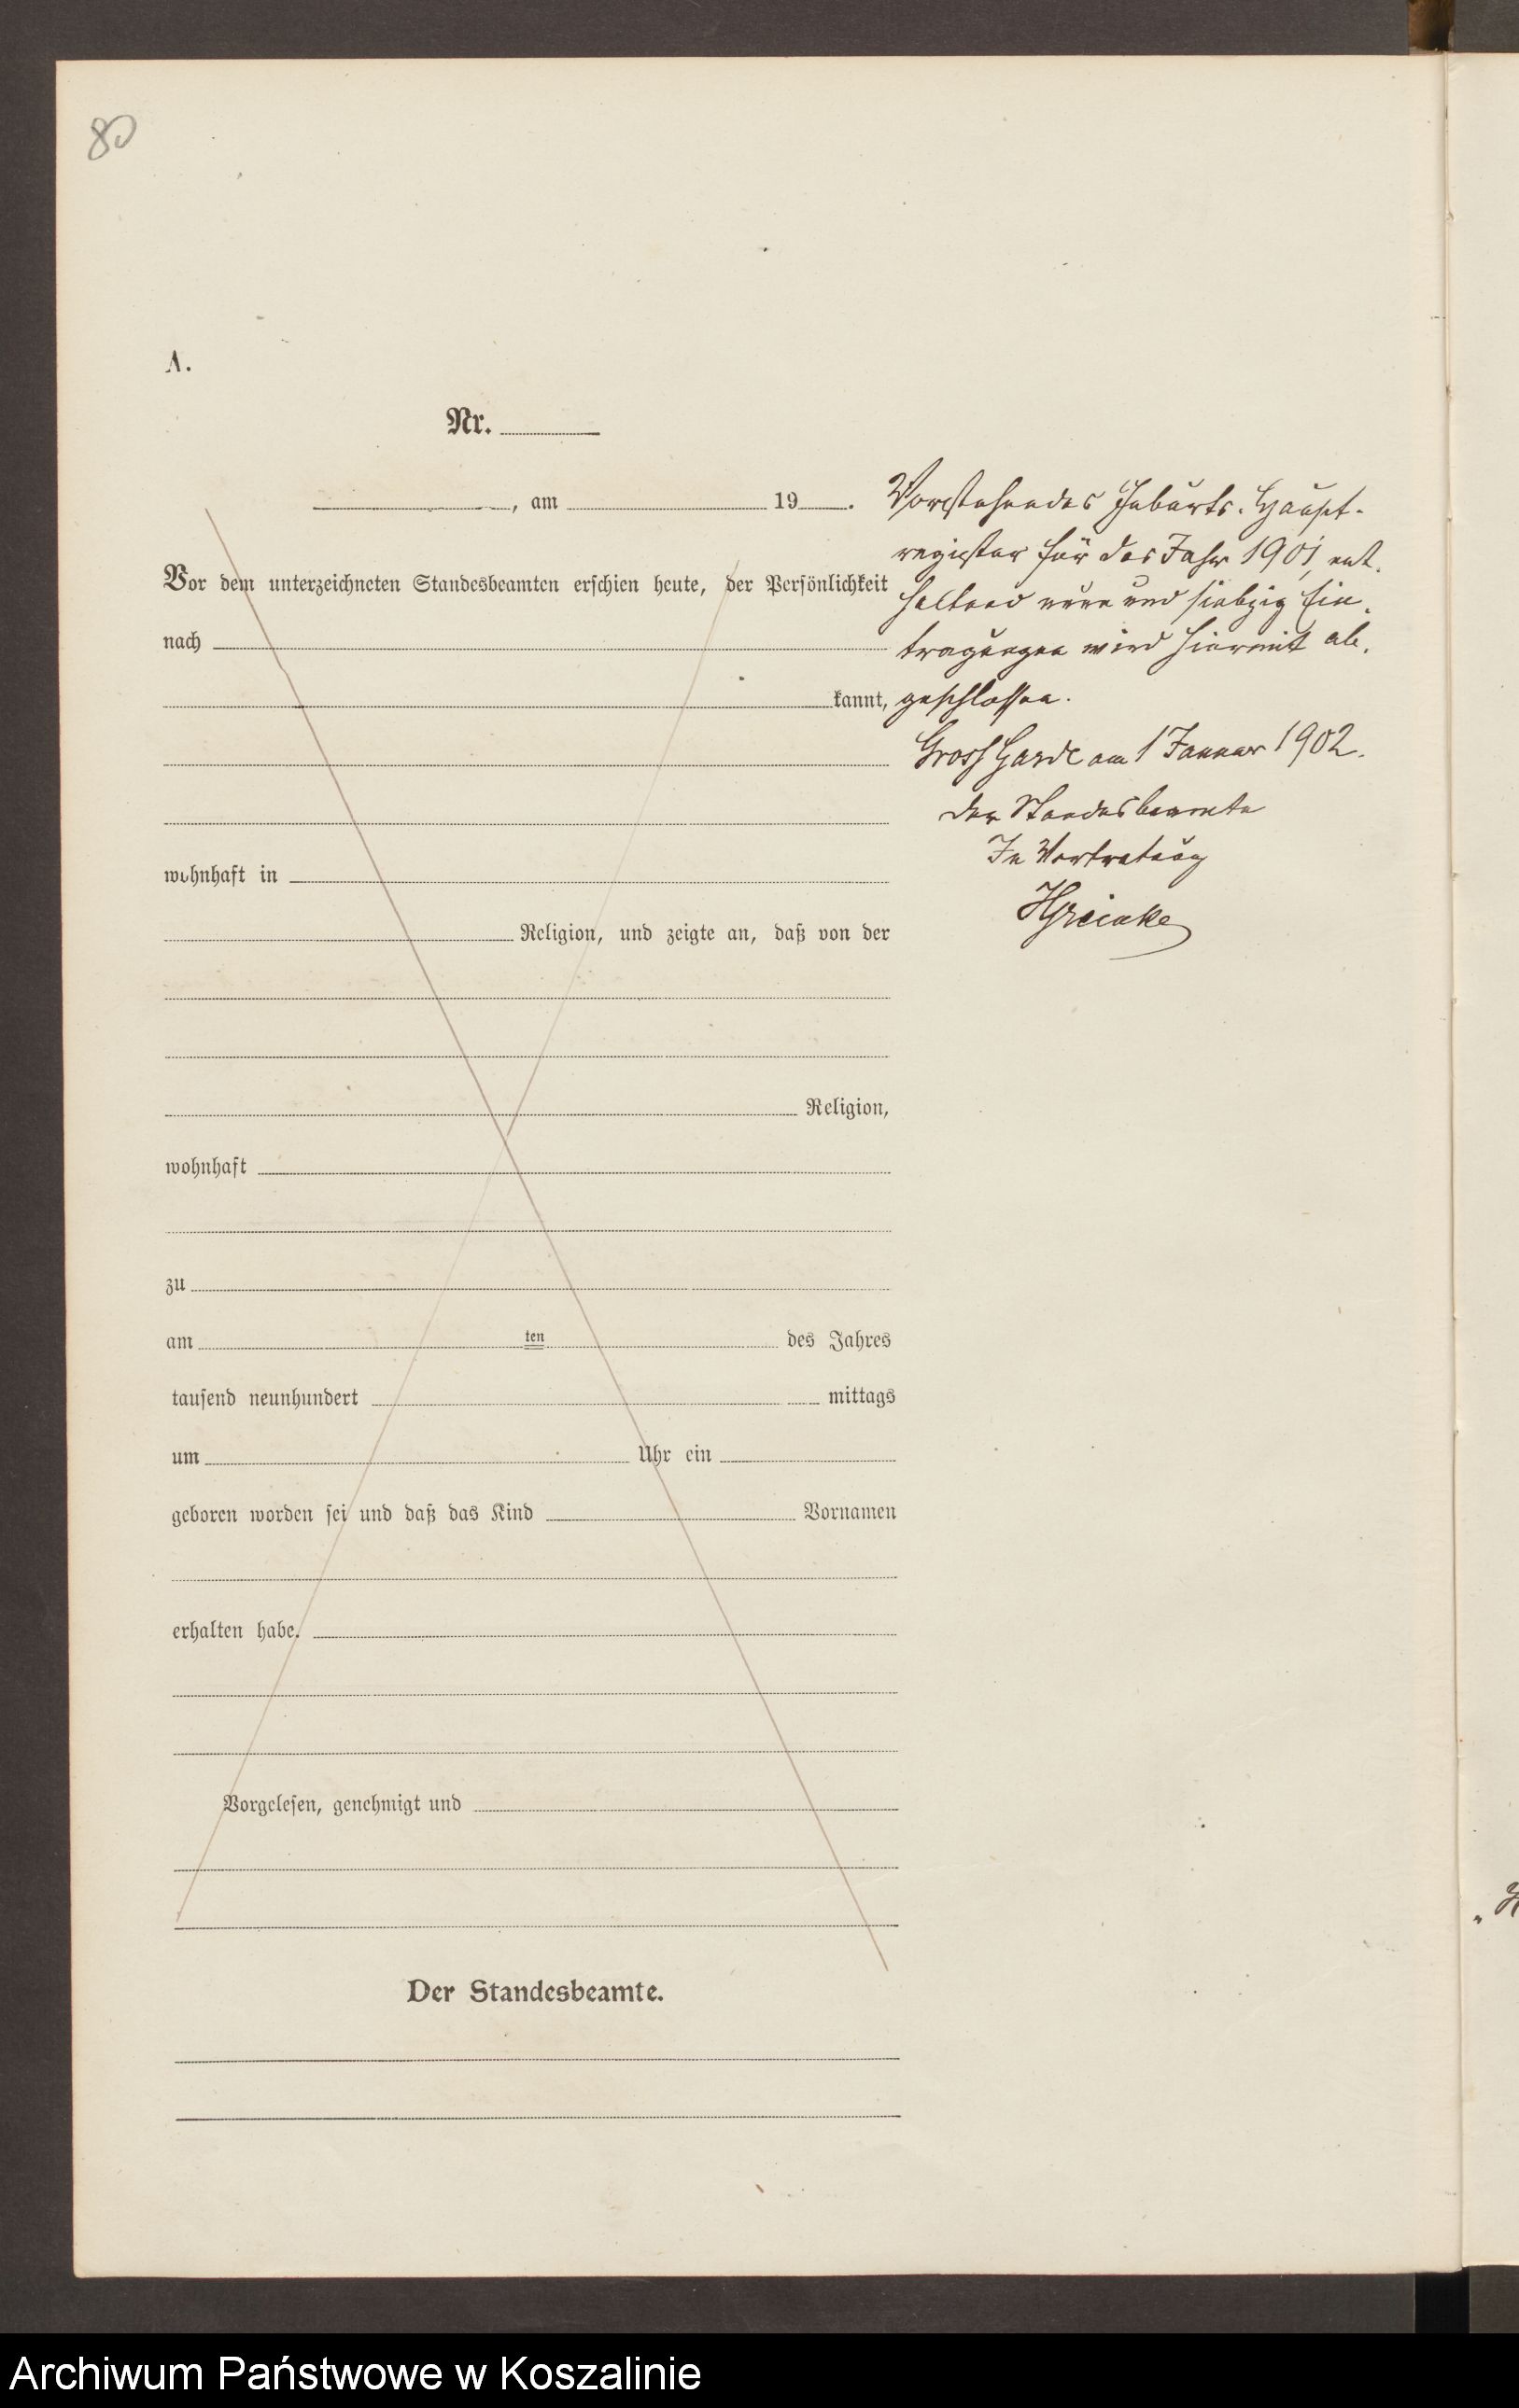 80
A.
Nr.
, am 19 .
Vor dem unterzeichneten Standesbeamten erschien heute, der Persönlichkeit
nach
kannt,
wohnhaft in
Religion, und zeigte an, daß von der
Religion,
wohnhaft
zu
am ten des Jahres
tausend neunhundert mittags
um Uhr ein
geboren worden sei und daß das Kind Vornamen
erhalten habe.
Vorgelesen, genehmigt und
Der Standesbeamte.
Vorstehendes Geburts-Haupt-
register für das Jahr 1901, ent-
haltend neun und siebzig Ein-
tragungen wird hiermit ab-
geschlossen.
Gross Garde am 1 Januar 1902.
Der Standesbeamte
In Vertretung
Archiwum Państwowe w Koszalinie